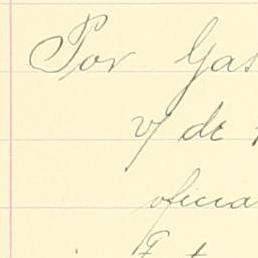 Por Gas
v/ de
oficia